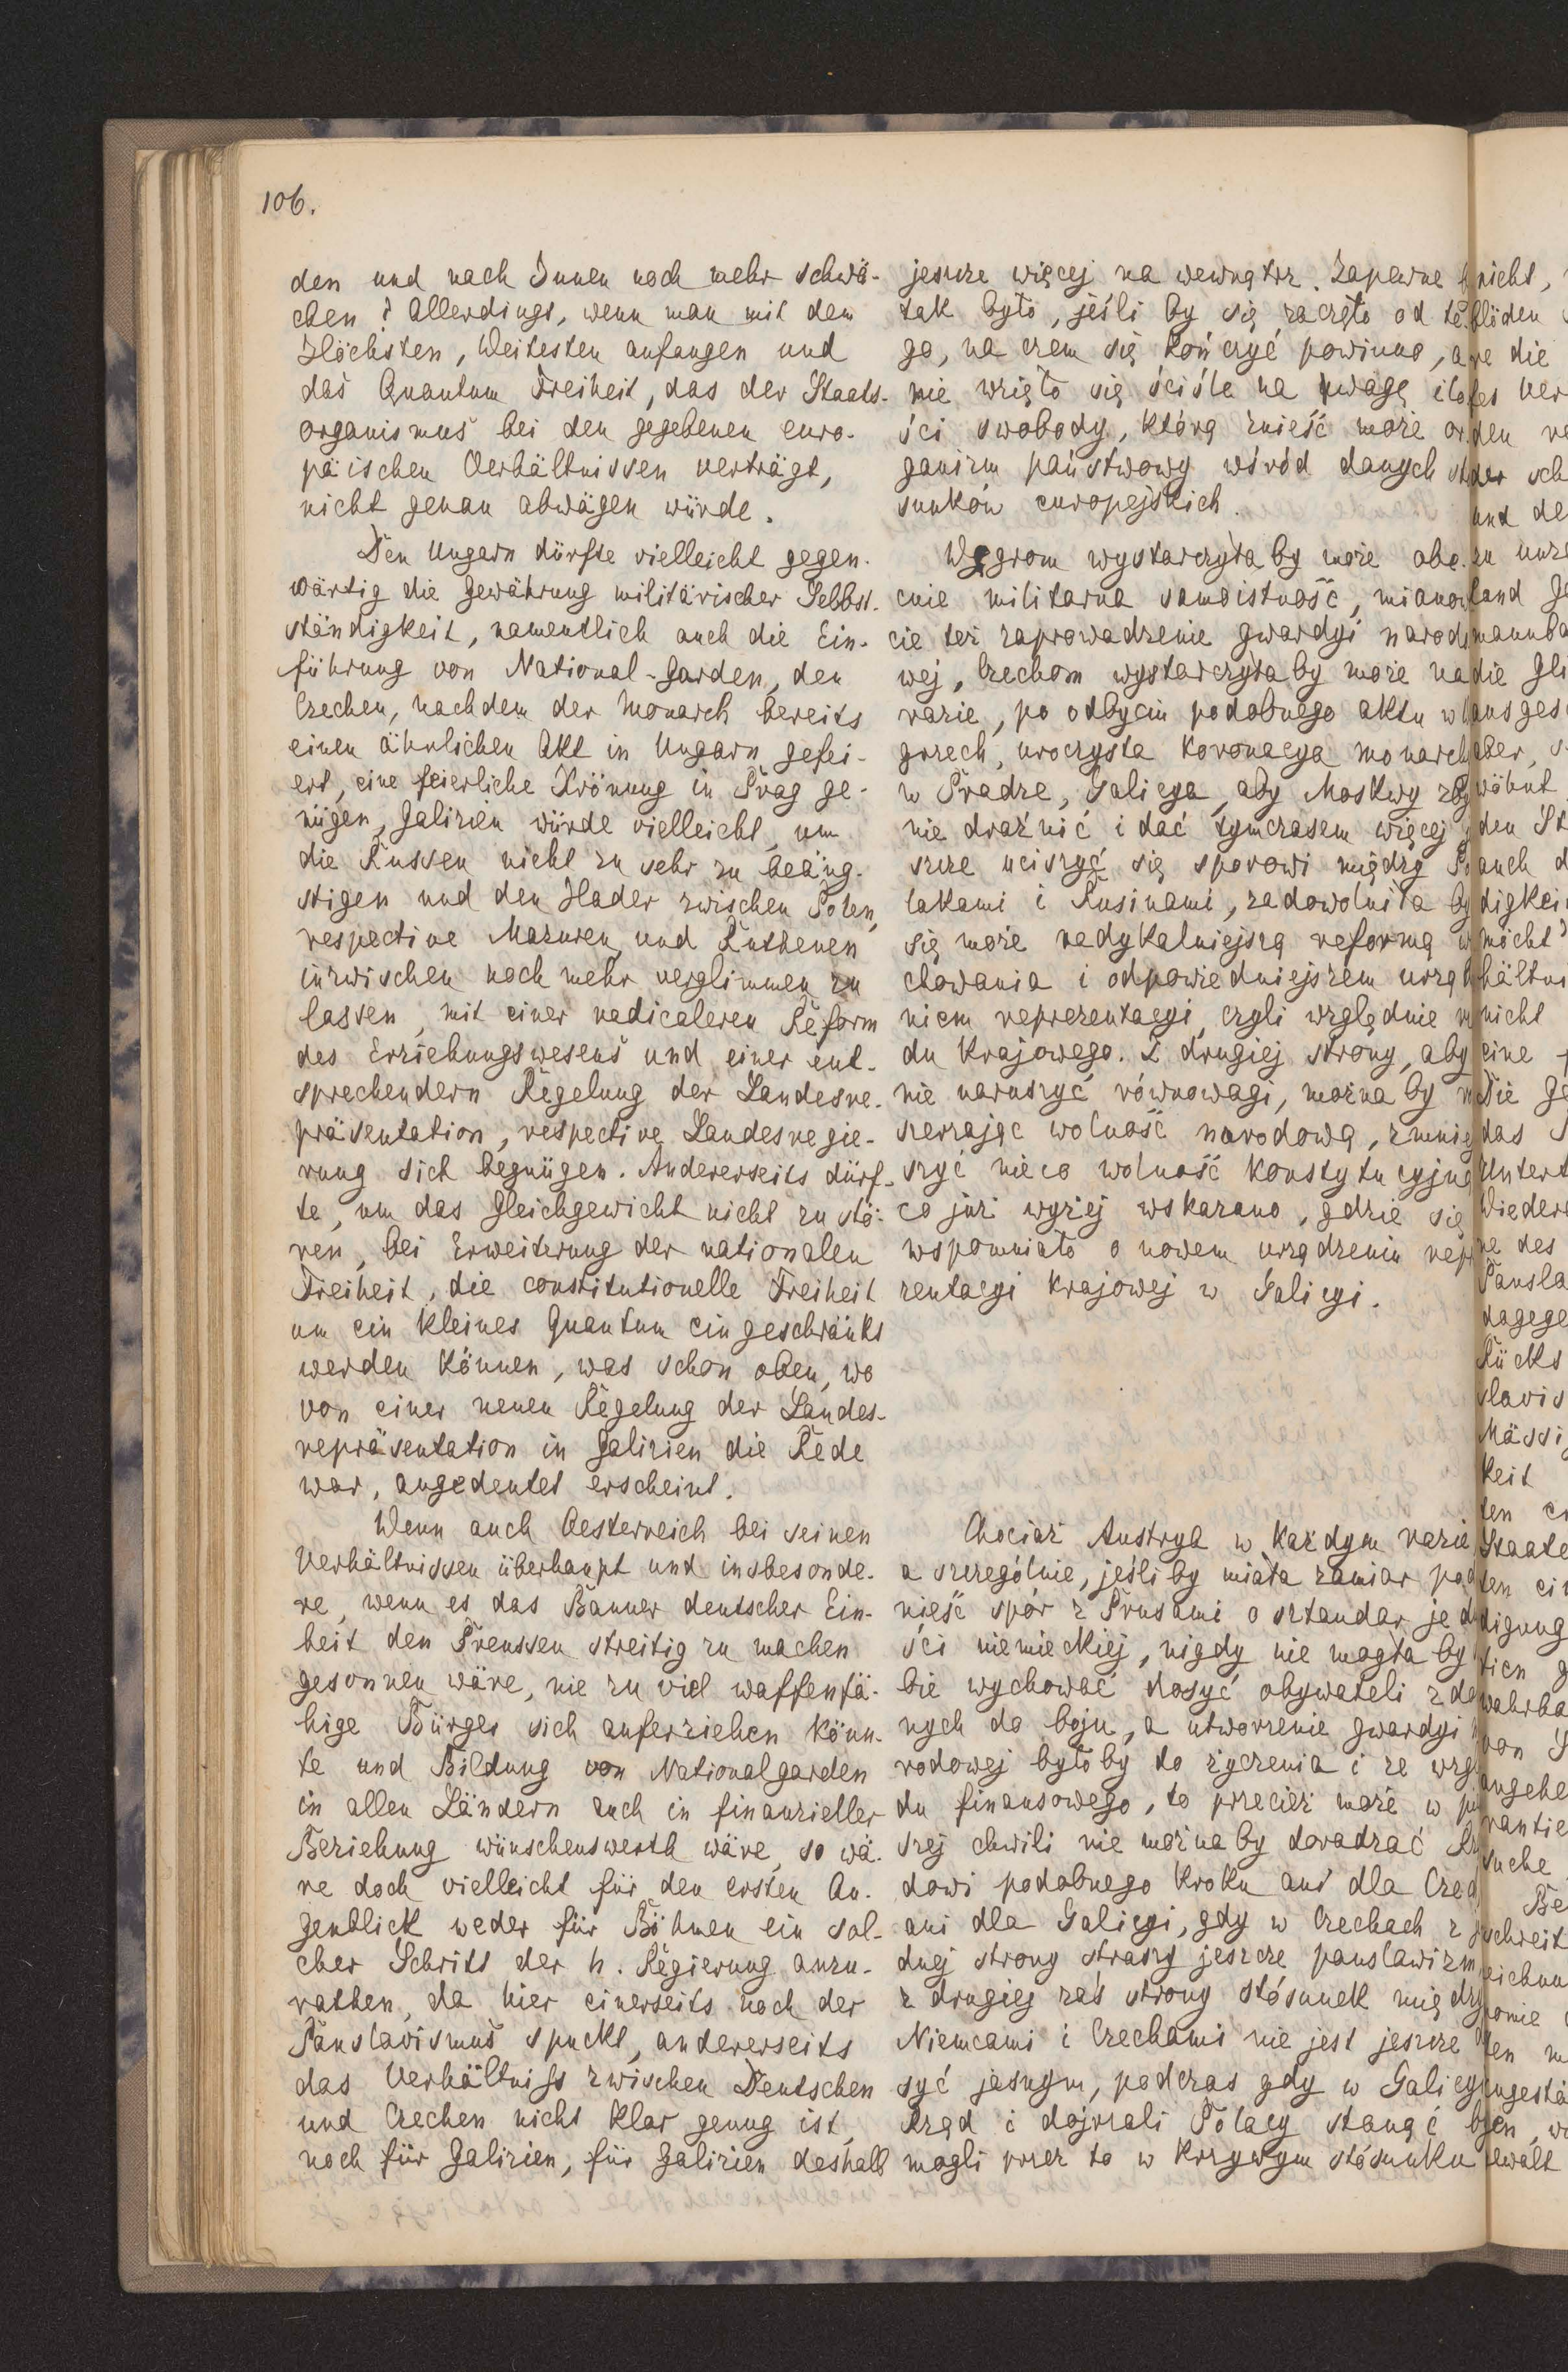 106.
den und nach Innen noch mehr schwä-
chen? Allerdings, wenn man mit dem
Höchsten, Weitesten anfangen und
das Quantum Freiheit, das der Staats-
organismus bei den gegebenen euro-
päischen Verhältnissen verträgt,
nicht genau abwägen würde.
Den Ungarn dürfte vielleicht gegen-
wärtig die Gewährung militärischer Selbst-
ständigkeit, namentlich auch die Ein-
führung von National-Garden, den
Czechen, nachdem der Monarch bereits
einen ähnlichen Akt in Ungarn gefei-
ert, eine feierliche Krönung in Prag ge-
nügen, Galizien würde vielleicht, um
die Russen nicht zu sehr zu beäng-
stigen und den Hader zwischen Polen,
respective Mazuren und Ruthenen
inzwischen noch mehr verglimmen zu
lassen, mit einer radicaleren Reform
des Erziehungswesens und einer ent-
sprechendern Regelung der Landesre-
präsentation, respective Landesregie-
rung sich begnügen. Andererseits dürf-
te, um das Gleichgewicht nicht zu stö-
ren, bei Erweiterung der nationalen
Freiheit, die constitutionelle Freiheit
um ein kleines Quantum eingeschränkt
werden können, was schon oben, wo
von einer neuen Regelung der Landes-
repräsentation in Galizien die Rede
war, angedeutet erscheint.
Wenn auch Oesterreich bei seinen
Verhältnissen überhaupt und insbesonde-
re, wenn es das Banner deutscher Ein-
heit den Preussen streitig zu machen
gesonnen wäre, nie zu viel waffenfä-
hige Bürger sich auferziehen könn-
te und Bildung von Nationalgarden
in allen Ländern auch in finanzieller
Beziehung wünschenswerth wäre, so wä-
re doch vielleicht für den ersten Au-
genblick weder für Böhmen ein sol-
cher Schritt der h. Regierung anzu-
rathen, da hier einerseits noch der
Panslavismus spuckt, andererseits
das Verhältniß zwischen Deutschen
und Czechen nicht klar genug ist,
noch für Galizien, für Galizien deshalb
jeszcze więcej na wewnątrz. Zapewne
tak było, jeśli by się zaczęło od te-
go, na czem się kończyć powinno, a
nie wzięło się ściśle na uwagę ilo
ści swobody, którą znieść może or
ganizm państwowy wśród danych st
sunków europejskich.
Węgrom wystarczyła by może obe-
cnie militarna samoistność, mianow
cie też zaprowadzenie gwardyi narodo
wej, Czechom wystarczyła by może na
razie, po odbyciu podobnego aktu w
grzech, uroczysta koronacya monarch
w Pradze, Galicya, aby Moskwy zby
nie drażnić i dać tymczasem więcej
szcze uciszyć się sporowi między Po
lakami i Rusinami, zadowolniła by
się może radykalniejszą reformą w
chowania i odpowiedniejszem urzą
niem reprezentacyi, czyli względnie
du krajowego. Z drugiej strony, aby
nie naruszyć równowagi, można by
szerzając wolność narodową, zmnie
szyć nieco wolność konstytucyjną
co już wyżej wskazano, gdzie się
wspomniało o nowem urządzeniu repr
zentacyi krajowej w Galicyi.
Chociaż Austrya w każdym razie
a szczególnie, jeśli by miała zamiar pod
nieść spór z Prusami o sztandar jed
ści niemieckiej, nigdy nie mogła by
bie wychować dosyć obywateli zdo
nych do boju, a utworzenie gwardyi
rodowej było by do życzenia i ze wzg
du finansowego, to przecież może w
szej chwili nie można by doradzać Rz
dowi podobnego kroku ani dla Czec
ani dla Galicyi, gdy w Czechach z
dnej strony straszy jeszcze panslawizm
z drugiej zaś strony stósunek między
Niemcami i Czechami nie jest jeszcze
syć jasnym, podczas gdy w Galicy
Rząd i dojrzali Polacy stanąć by
mogli przez to w krzywym stósunku